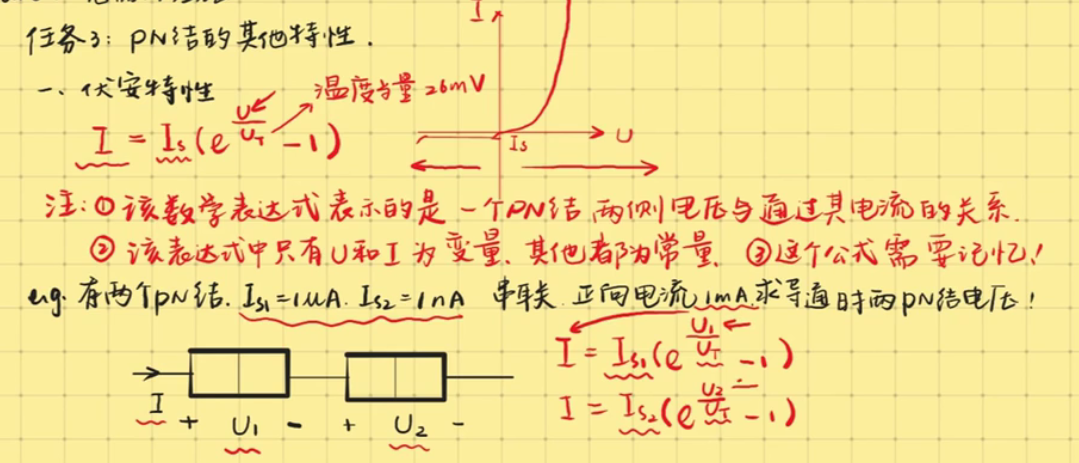 任务3: PN结的其他特性.
一、伏安特性
温度当量 26mV
I = Is(e^(U/U_T) - 1)
I
U
Is
注:①该数学表达式表示的是一个PN结两侧电压与通过其电流的关系.
②该表达式中只有U和I为变量.其他都为常量. ③这个公式需要记忆!
e.g. 有两个PN结. Is1=1μA. Is2=1nA 串联.正向电流1mA.求导通时两PN结电压!
I = Is1(e^(U1/U_T) - 1)
I = Is2(e^(U2/U_T) - 1)
I + U1 - + U2 -